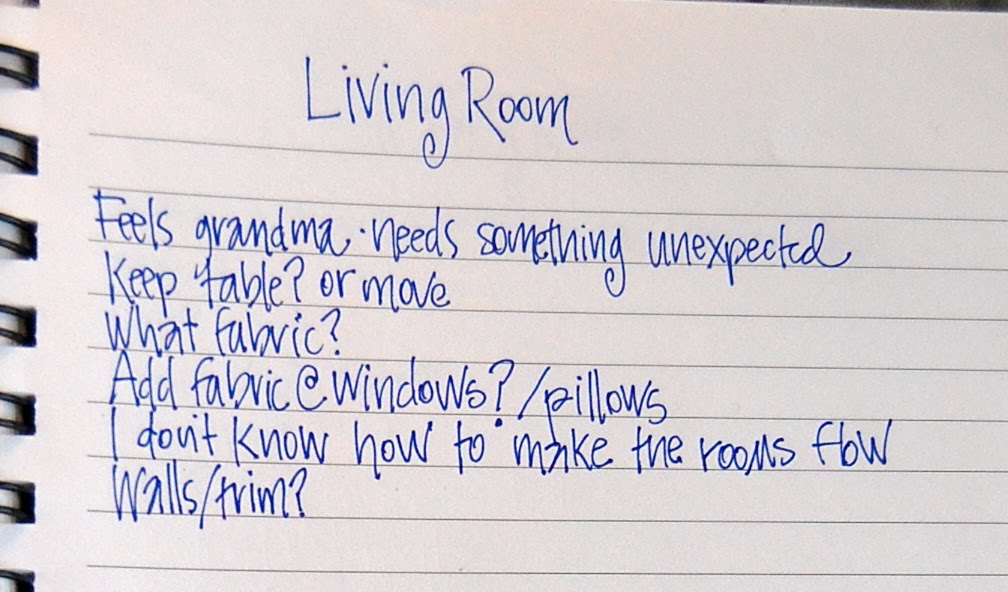 Living Room
Feels grandma · needs something unexpected
Keep table? or move
What fabric?
Add fabric @ windows? / pillows
I don't know how to make the rooms flow
Walls/trim?